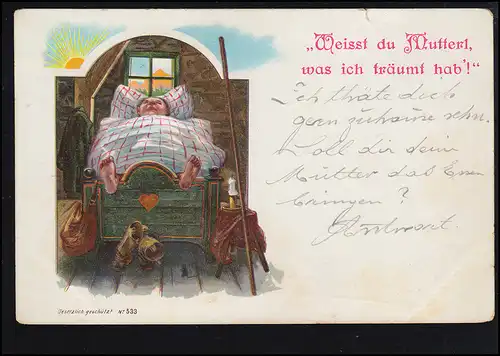 „Weisst du Mutterl,
was ich träumt hab'!“
Ich thäte dich
gern zuhause sehn.
Soll dir dein
Mutter das Essen
bringen?
Antwort.
Gesetzlich geschützt! Nº 533